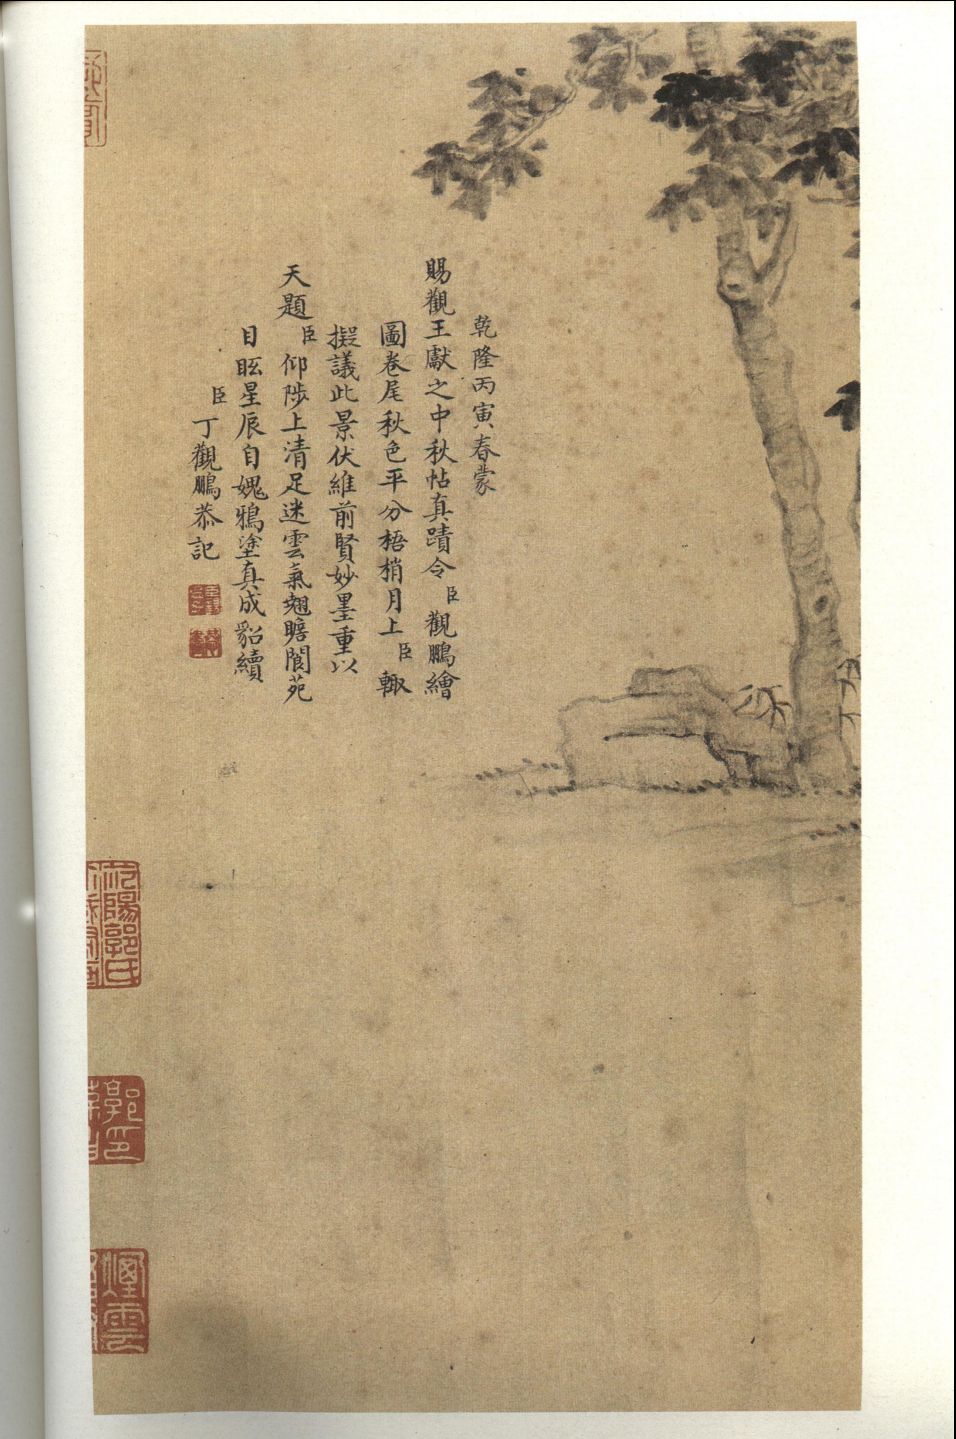 乾隆丙寅春蒙
賜觀王獻之中秋帖真蹟令臣觀鵬繪
圖卷尾秋色平分梧梢月上臣輙
擬議此景伏維前賢妙墨重以
天題臣仰陟上清足迷雲氣翹瞻閬苑
目眩星辰自媿鴉塗真成貂續
臣丁觀鵬恭記
郭氏
郭印
煙雲